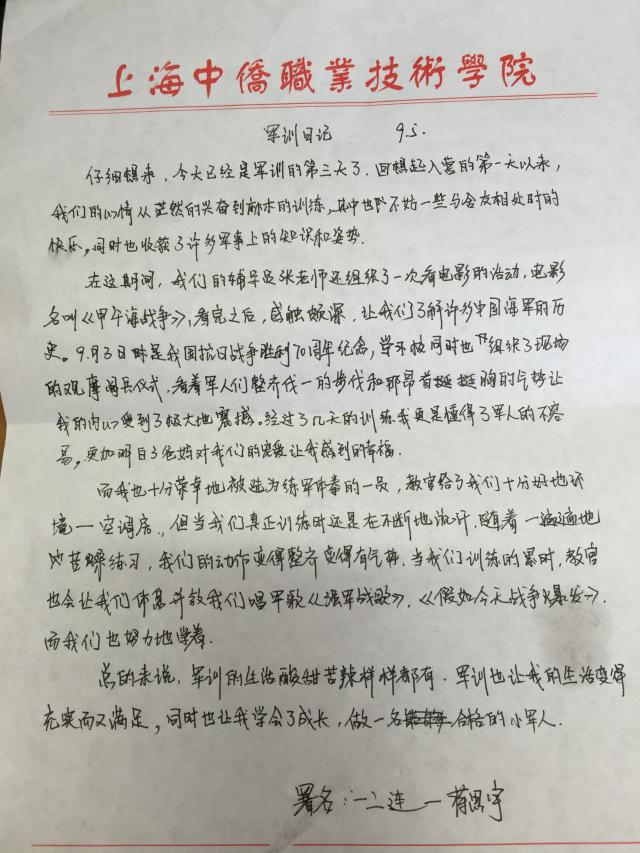 上海中僑職業技術學院
军训日记 9.5.
仔细想来，今天已经是军训的第三天了，回想起入营的第一天以来，
我们的心情从茫然的兴奋到麻木的训练，其中也不妨一些与舍友相处时的
快乐，同时也收获了许多军事上的知识和姿势.
在这期间，我们的辅导员张老师还组织了一次看电影的活动，电影
名叫《甲午海战争》，看完之后，感触颇深，让我们了解许多中国海军的历
史。9月3日时是我国抗日战争胜利70周年纪念，学校同时也组织了现场
的观摩阅兵仪式，看着军人们整齐伐一的步伐和那昂首挺挺胸的气势让
我的内心受到了极大地震撼。经过了几天的训练我更是懂得了军人的不容
易，更加明白了爸妈对我们的宠爱让我感到的幸福.
而我也十分荣幸地被选为练军体拳的一员，教官给了我们十分好地环
境一空调房，但当我们真正训练时还是在不断地流汗，随着一遍遍地
苦練练习，我们的动作变得整齐变得有气势，当我们训练的累时，教官
也会让我们休息并教我们唱军歌《强军战歌》，《假如今天战争爆发》.
而我们也努力地学着.
总的来说，军训的生活酸甜苦辣样样都有，军训也让我的生活变得
充实而又满足，同时也让我学会了成长，做一名合格的小军人.
署名：一二连一蒋思宇